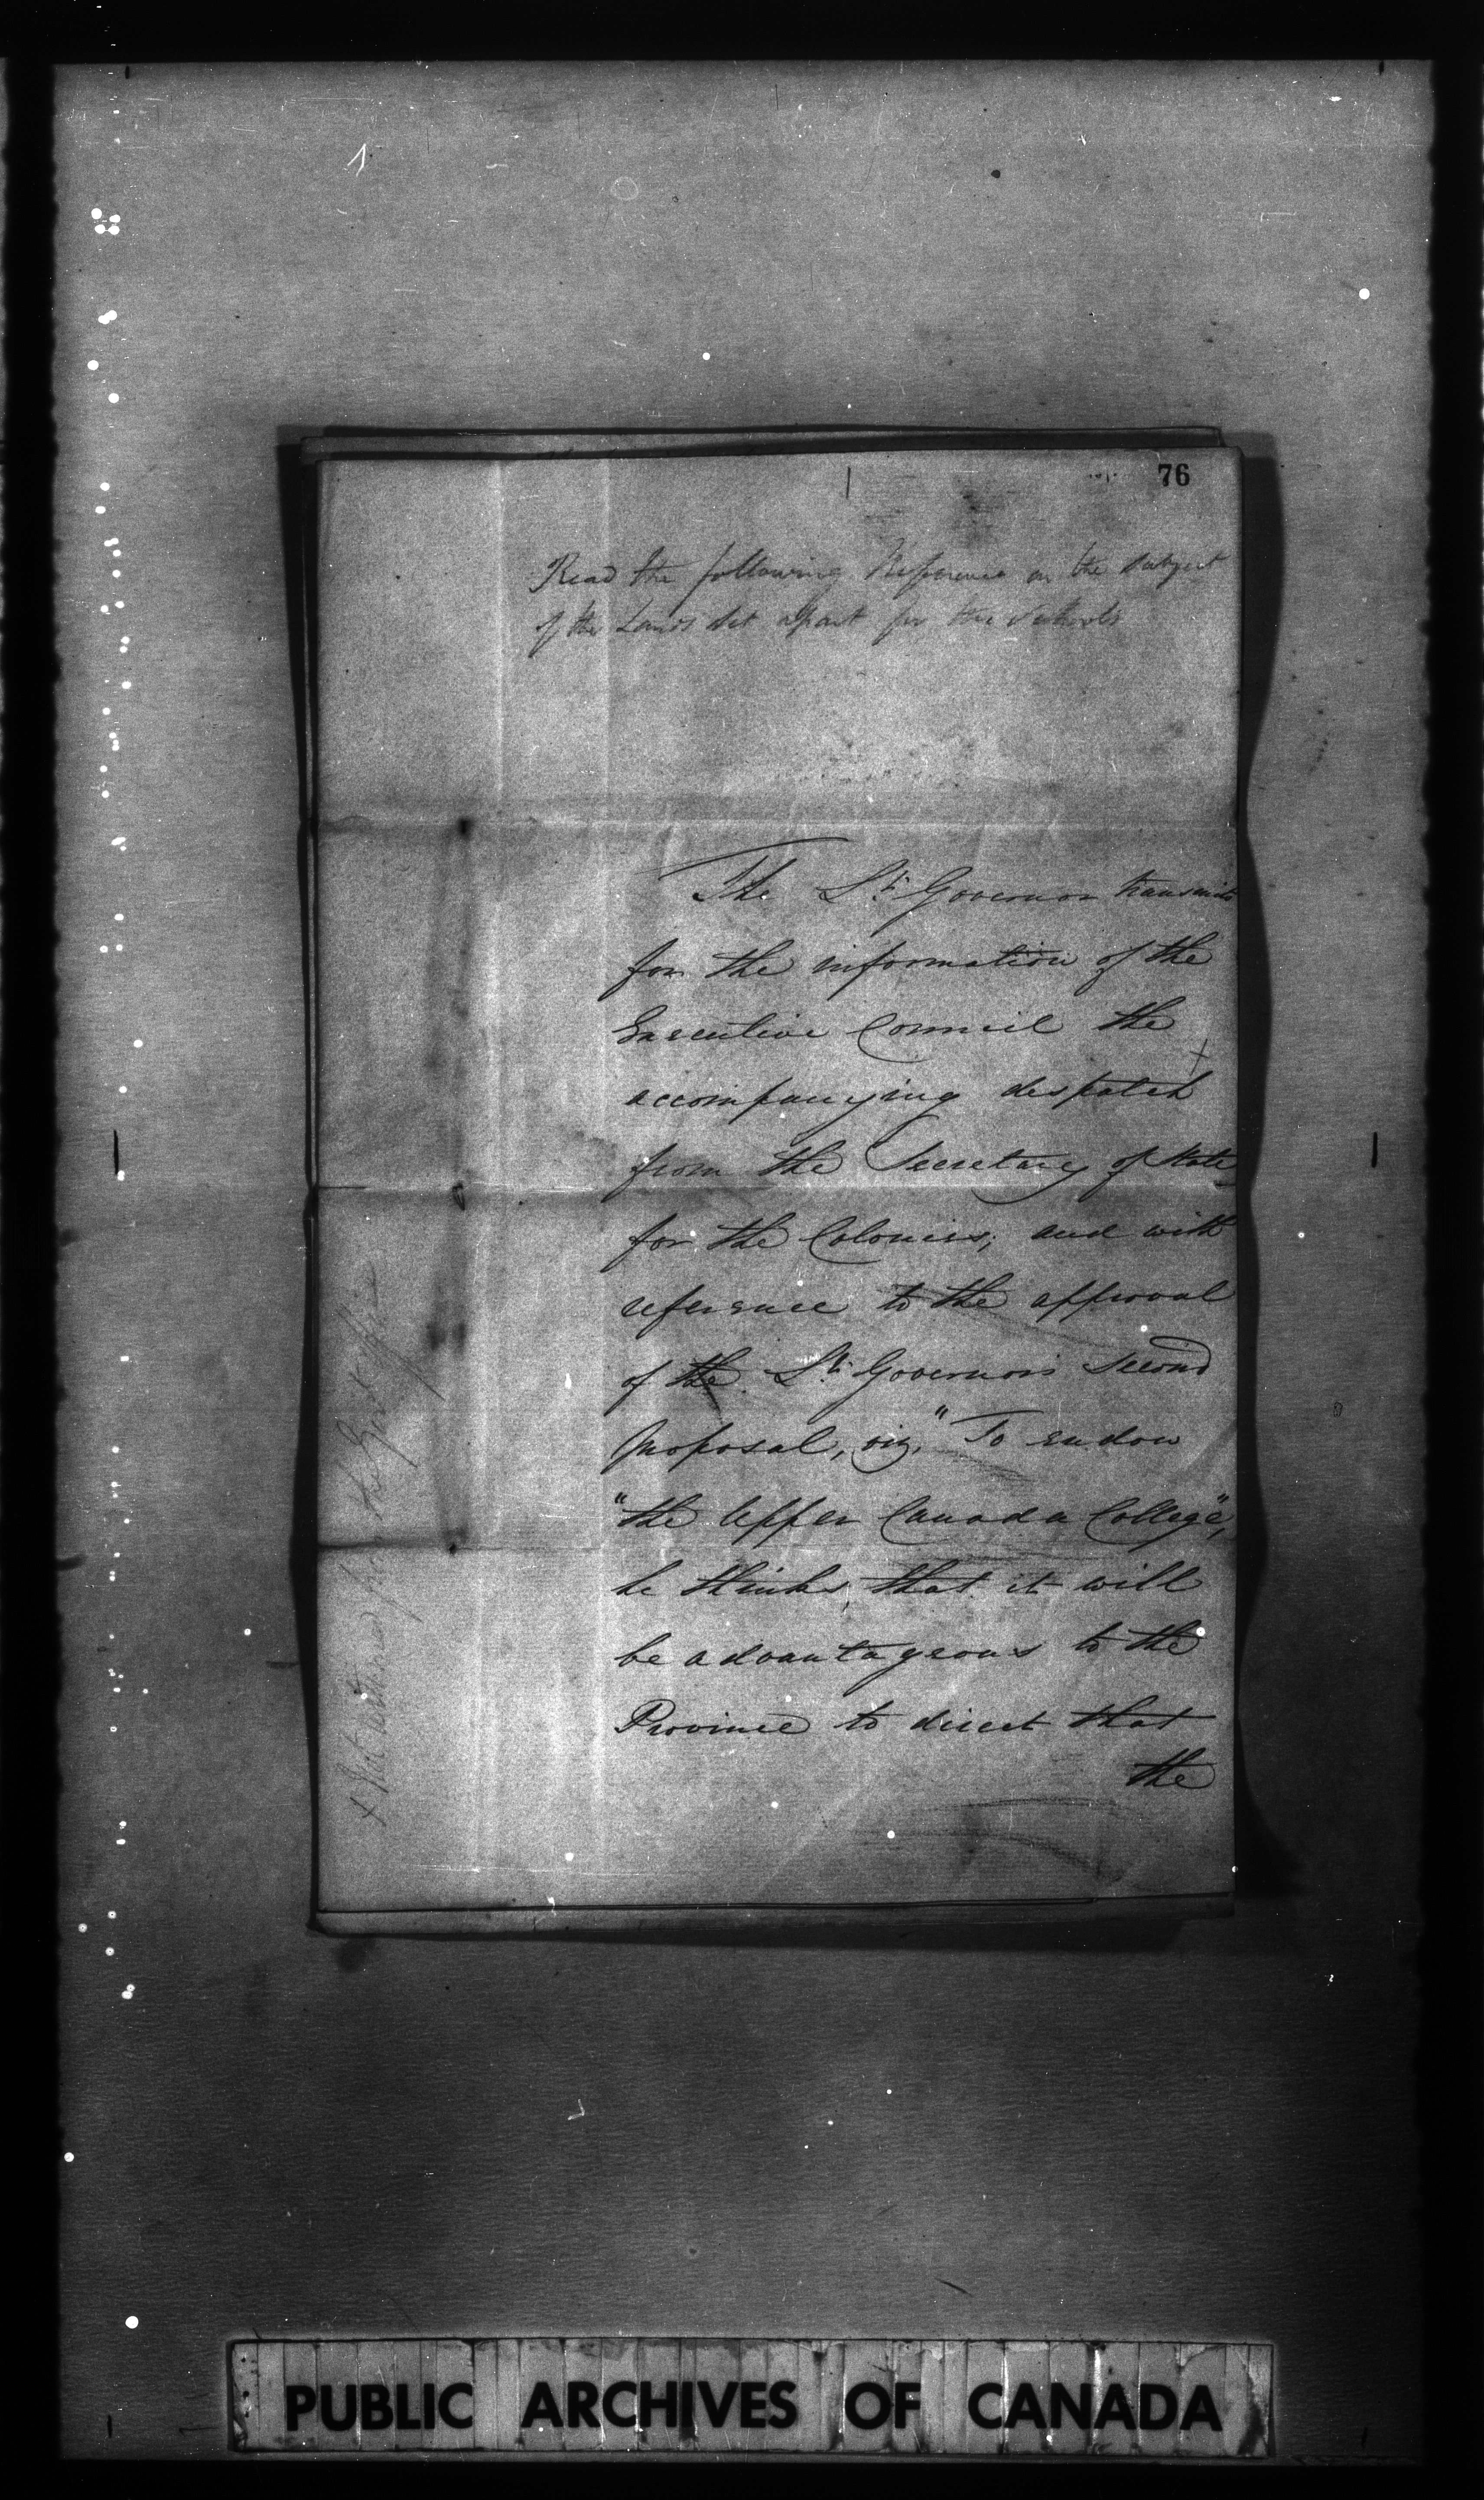 76
Read the following Reference on the subject
of the Lands set apart for the Schools
The Lt. Governor transmits
for the information of the
Executive Council the
accompanying despatch +
from the Secretary of State
for the Colonies; and with
reference to the approval
of the Lt. Governors second
proposal, viz. "To endow
"the Upper Canada College",
he thinks, that it will
be advantageous to the
Province to direct that
the
+ Not
PUBLIC ARCHIVES OF CANADA